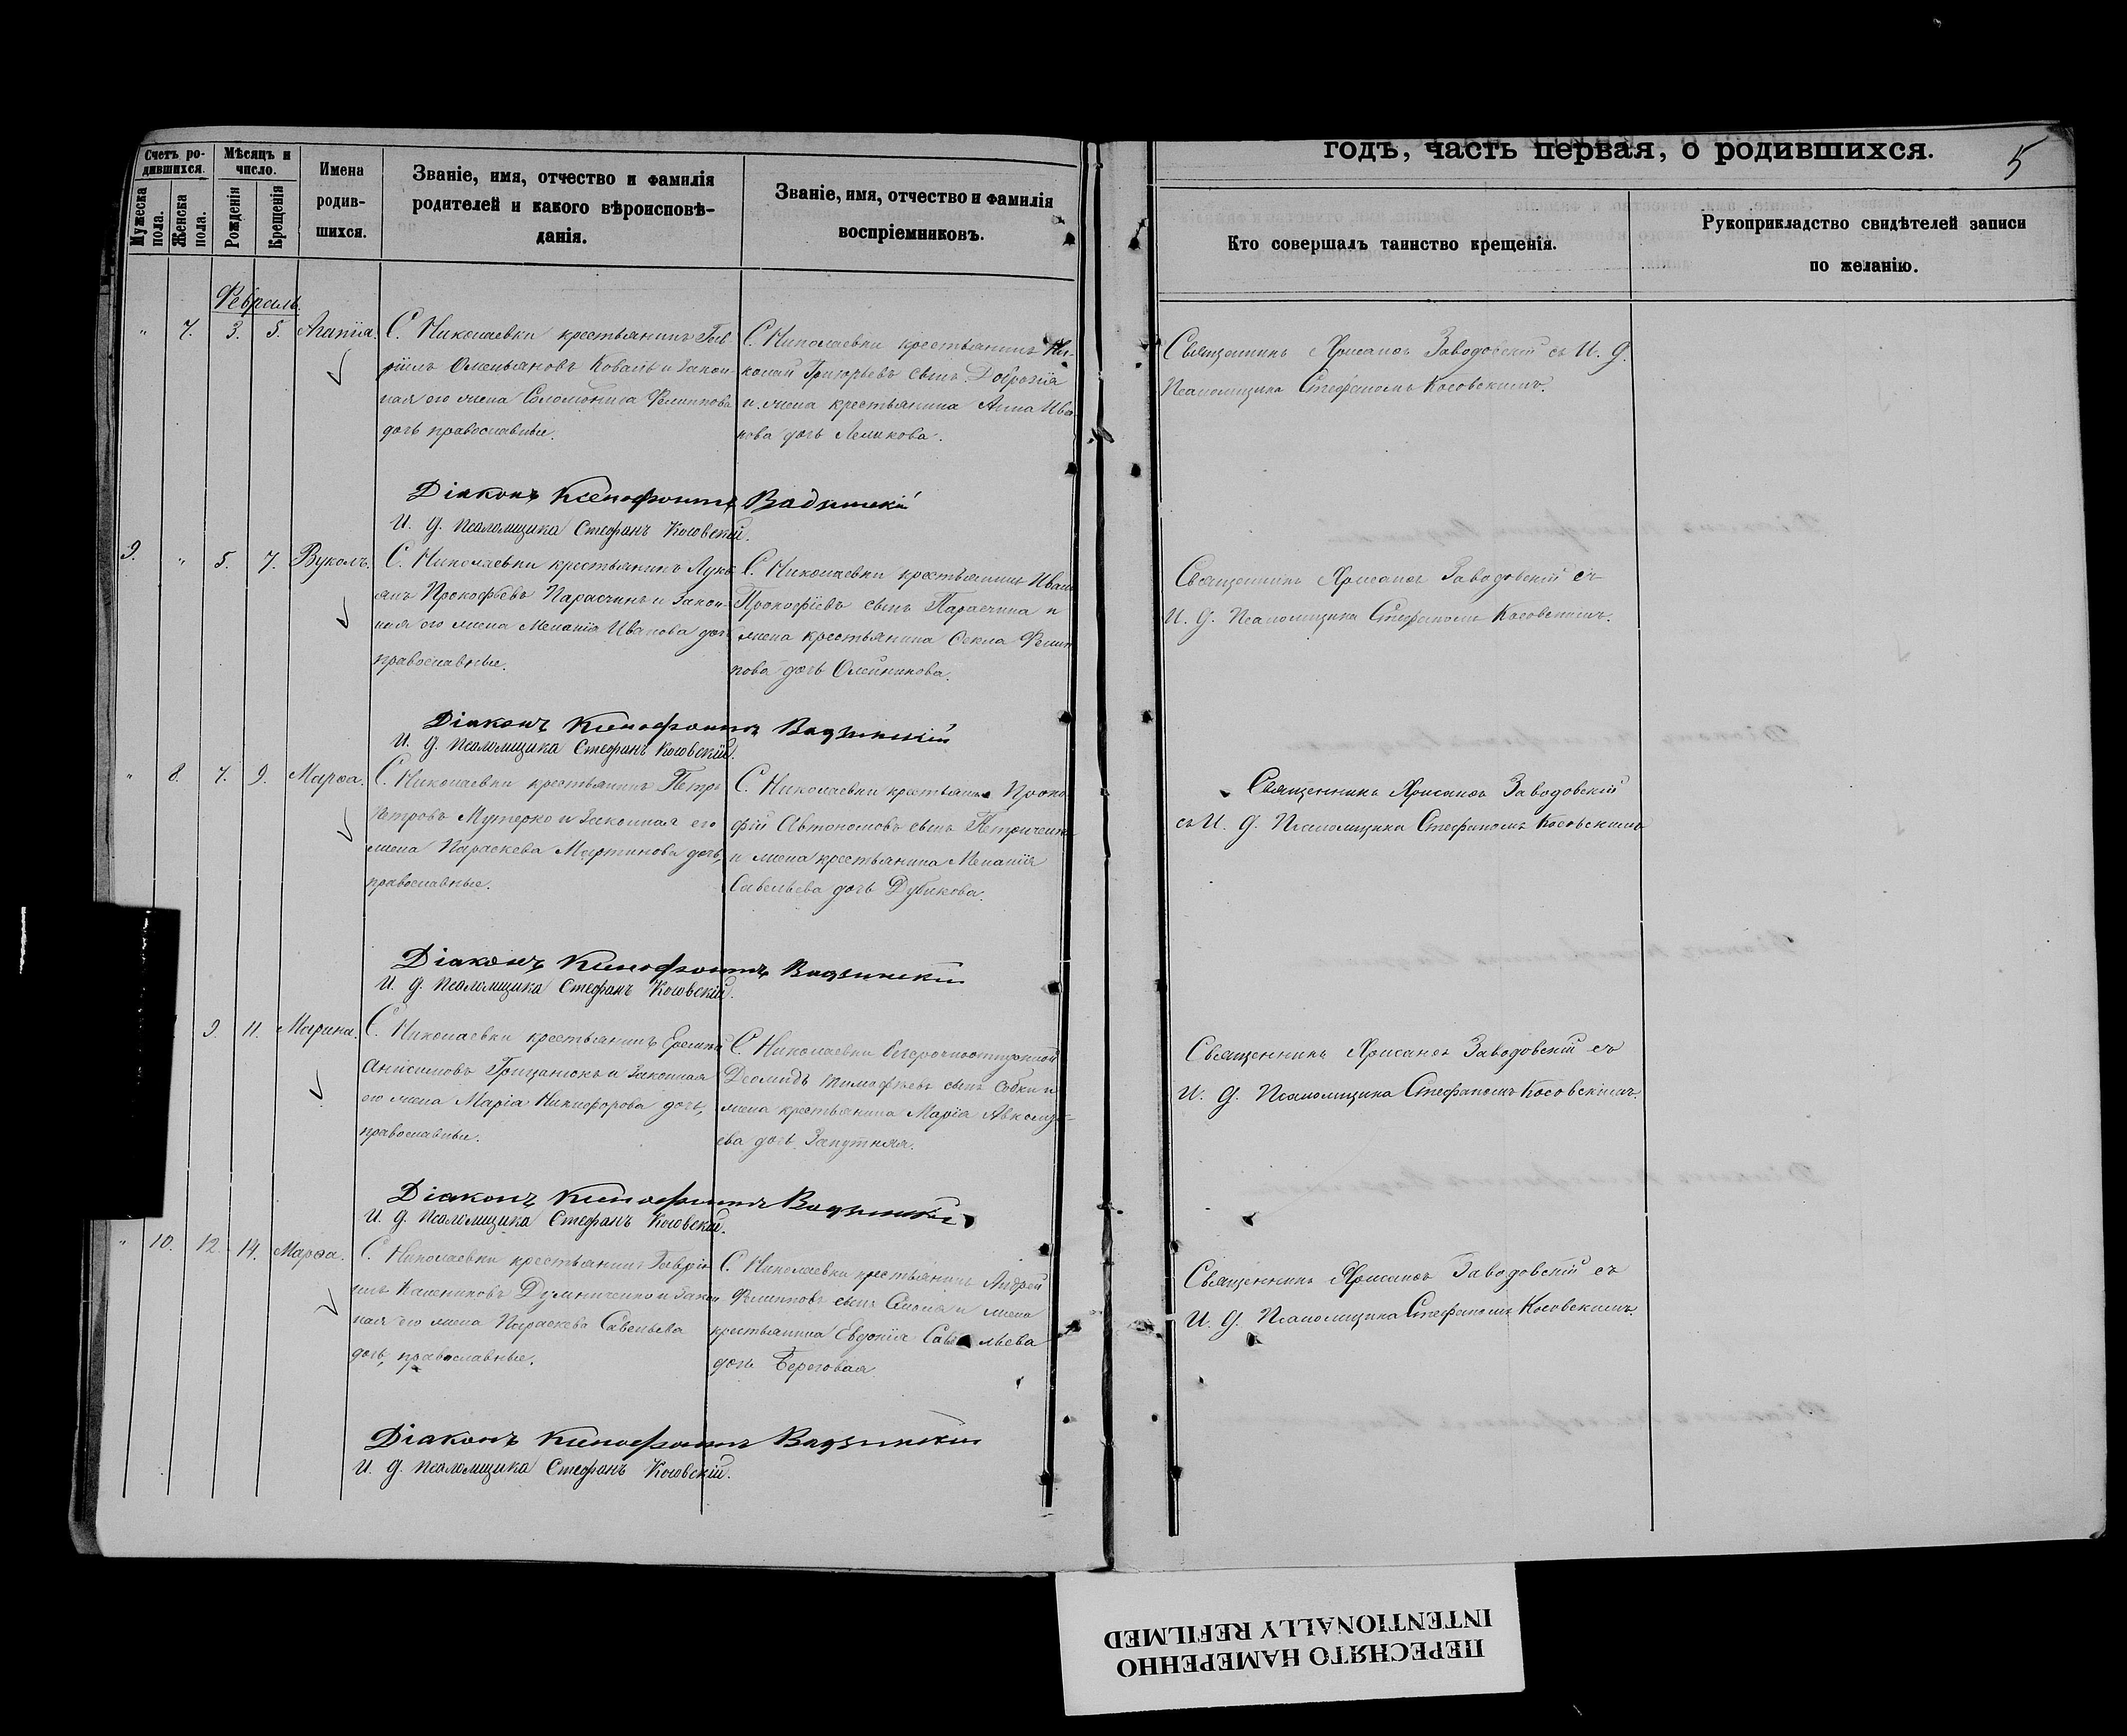 Счетъ ро-
дившихся.
Мужеска
пола.
Женска
пола.
Мѣсяцъ и
число.
Рожденія
Крещенія
Имена
родив-
шихся.
Званіе, имя, отчество и фамилія
родителей и какого вѣроисповѣ-
данія.
Званіе, имя, отчество и фамилія
воспріемниковъ.
годъ, часть первая, о родившихся.
5
Кто совершалъ таинство крещенія.
Рукоприкладство свидѣтелей записи
по желанію.
Февраль.
" 7. 3. 5. Агапія.
С. Николаевки крестьянинъ Гав
ріилъ Омельяновъ Коваль и закон-
ная его жена Соломонида Филиппова
дочь православные.
С. Николаевки крестьянинъ Ни-
колай Григорьевъ сынъ Доброжія
и жена крестьянина Анна Ива
нова дочь Лемикова.
Священникъ Хрисанѳъ Заводовскій съ И. д.
Псаломщика Стефаномъ Косовскимъ.
Діаконъ Ксенофонтъ Вадзинскій
И. д. Псаломщика Стефанъ Косовскій.
9. " 5. 7. Вуколъ.
С. Николаевки крестьянинъ Лукі
анъ Прокофьевъ Парасчинъ и закон-
ная его жена Меланія Иванова дочь
православные.
С. Николаевки крестьянинъ Иванъ
Прокофіевъ сынъ Парасчина и
жена крестьянина Ѳекла Филип
пова дочь Олейникова.
Священникъ Хрисанѳъ Заводовскій съ
И. д. Псаломщика Стефаномъ Косовскимъ.
Діаконъ Ксенофонтъ Вадзинскій
И. д. Псаломщика Стефанъ Косовскій.
" 8. 7. 9. Марѳа.
С. Николаевки крестьянинъ Петръ
Петровъ Мутерко и законная его
жена Параскева Мартинова дочь,
православные.
С. Николаевки крестьянинъ Проко
фій Автономовъ сынъ Петриченко
и жена крестьянина Меланія
Савельева дочь Дубикова.
Священникъ Хрисанѳъ Заводовскій
съ И. д. Псаломщика Стефаномъ Косовскимъ
Діаконъ Ксенофонтъ Вадзинскій
И. д. Псаломщика Стефанъ Косовскій.
9. 11. Марина.
С. Николаевки крестьянинъ Еремій
Анисимовъ Грицанюкъ и законная
его жена Марія Никифорова дочь,
православные.
С. Николаевки безсрочноотпускной
Деомидъ Тимофѣевъ сынъ Собки и
жена крестьянина Марія
ева дочь Запутняя.
Священникъ Хрисанѳъ Заводовскій съ
И. д. Псаломщика Стефаномъ Косовскимъ.
Діаконъ Ксенофонтъ Вадзинскій
И. д. Псаломщика Стефанъ Косовскій.
" 10. 12. 14. Марѳа.
С. Николаевки крестьянинъ Гаврі
илъ Калениковъ Думниченко и закон
ная его жена Параскева Савельева
дочь, православные.
С. Николаевки крестьянинъ Андрей
Филипповъ сынъ и жена
крестьянина Евдокія Савельева
дочь Береговая.
Священникъ Хрисанѳъ Заводовскій съ
И. д. Псаломщика Стефаномъ Косовскимъ.
Діаконъ Ксенофонтъ Вадзинскій
И. д. Псаломщика Стефанъ Косовскій.
ПЕРЕСНЯТО НАМЕРЕННО
INTENTIONALLY REFILMED